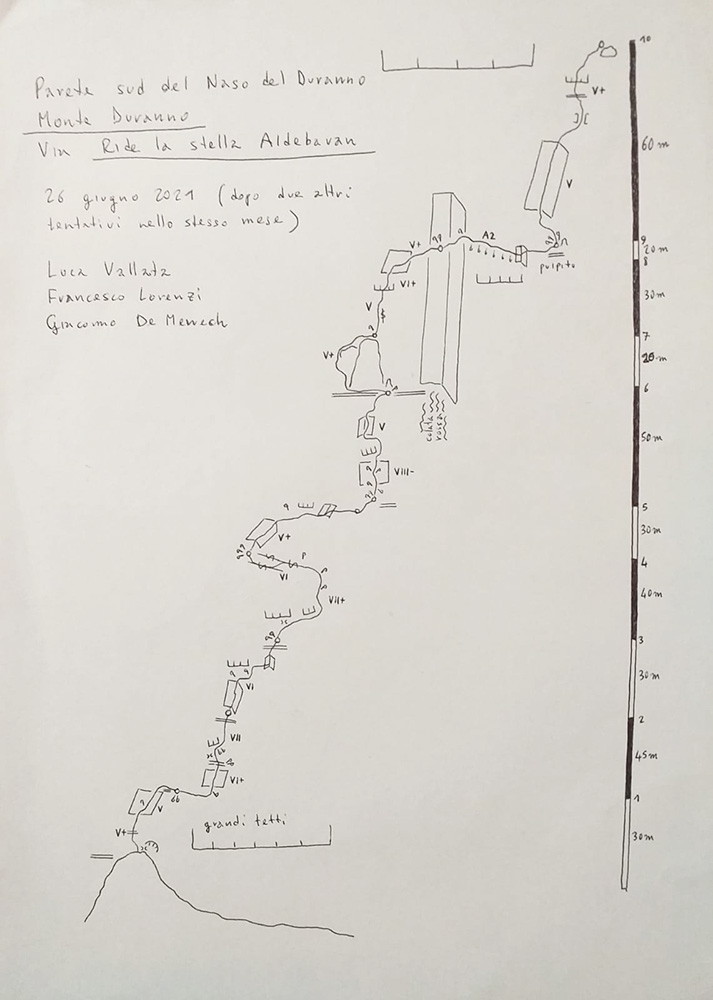 Parete sud del Naso del Duranno
Monte Duranno
Via Ride la stella Aldebaran
26 giugno 2021 (dopo due altri
tentativi nello stesso mese)
Luca Vallata
Francesco Lorenzi
Giacomo De Menech
10
V+
60 m
V
A2
V+
9
20 m
8
pulpito
VI+
30 m
V
7
V+
20 m
6
V
colata
rossa
50 m
VIII-
5
30 m
V+
4
VI
40 m
VII+
3
30 m
VI
2
VII
45 m
VI+
V
1
grandi tetti
V+
30 m